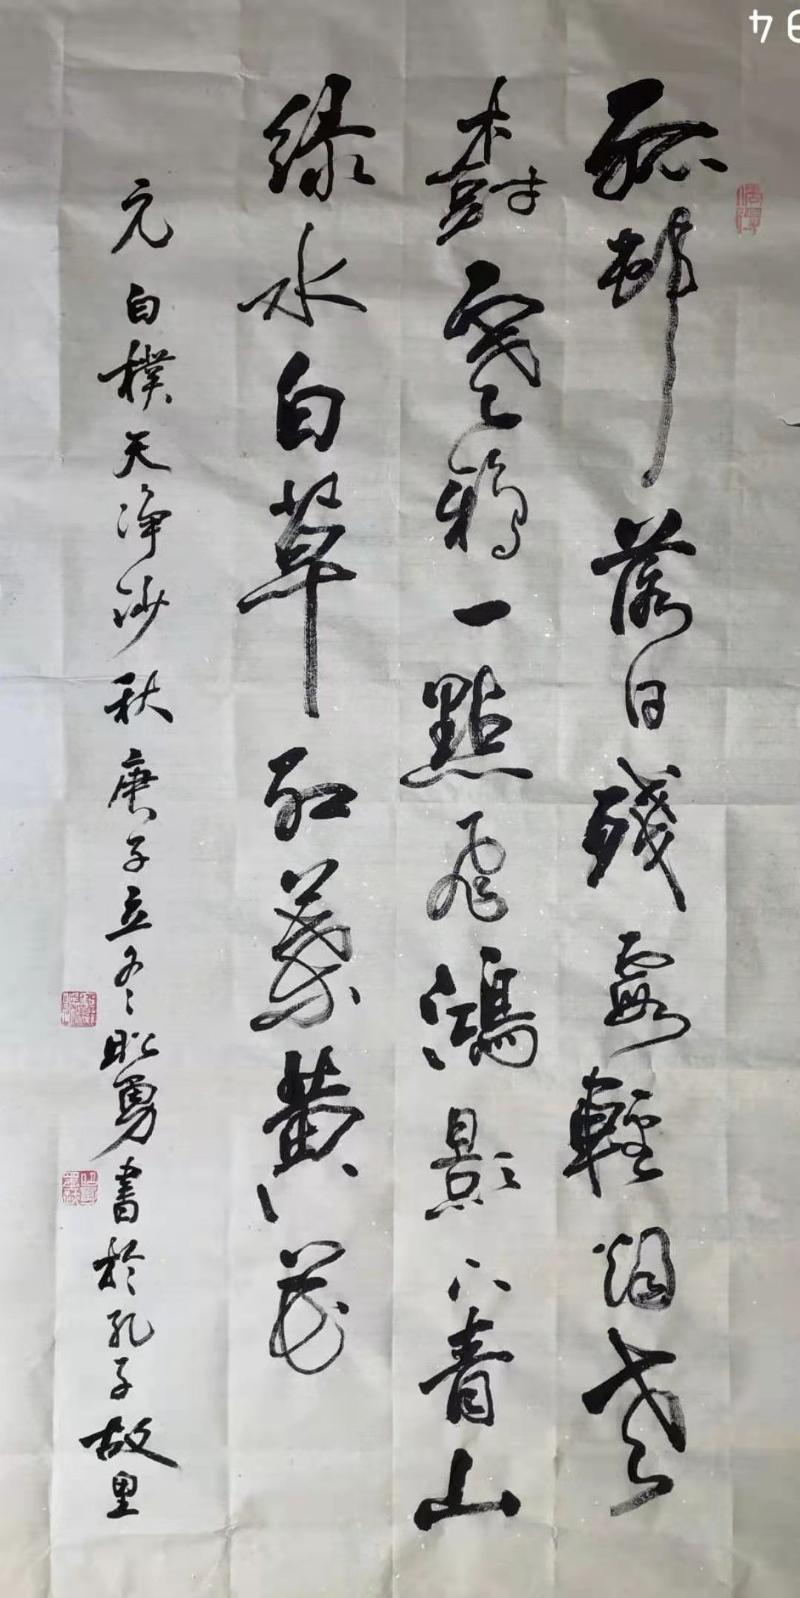 孤邨落日殘霞輕烟老
樹寒鸦一點飛鴻影下青山
绿水白草红葉黄花
元白樸天净沙秋庚子立冬勇書於孔子故里